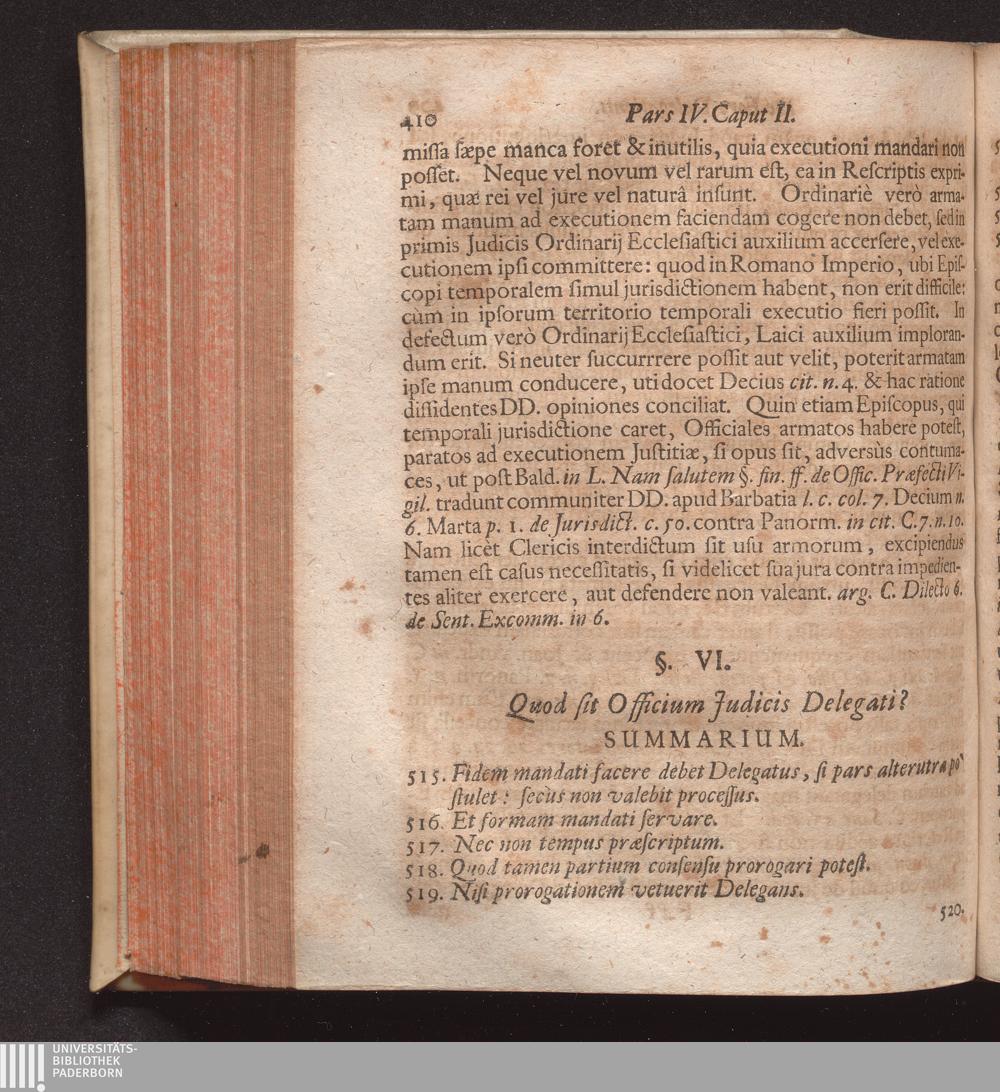 410 Pars IV. Caput II.
miſſa ſæpe manca foret & inutilis, quia executioni mandari non
poſſet. Neque vel novum vel rarum eſt, ea in Reſcriptis expri-
mi, quæ rei vel jure vel naturâ inſunt. Ordinariè verò arma-
tam manum ad executionem faciendam cogere non debet, ſed in
primis Judicis Ordinarij Eccleſiaſtici auxilium accerſere, vel exe-
cutionem ipſi committere: quod in Romano Imperio, ubi Epiſ-
copi temporalem ſimul jurisdictionem habent, non erit difficile:
cùm in ipſorum territorio temporali executio fieri poſſit. In
defectum verò Ordinarij Eccleſiaſtici, Laici auxilium imploran-
dum erit. Si neuter ſuccurrrere poſſit aut velit, poterit armatam
ipſe manum conducere, uti docet Decius cit. n. 4. & hac ratione
diſſidentes DD. opiniones conciliat. Quin etiam Epiſcopus, qui
temporali jurisdictione caret, Officiales armatos habere poteſt,
paratos ad executionem Juſtitiæ, ſi opus ſit, adversùs contuma-
ces, ut poſt Bald. in L. Nam ſalutem §. fin. ff. de Offic. Præfecti Vi-
gil. tradunt communiter DD. apud Barbatia l. c. col. 7. Decium n.
6. Marta p. 1. de Jurisdict. c. 50. contra Panorm. in cit. C. 7. n. 10.
Nam licèt Clericis interdictum ſit uſu armorum, excipiendus
tamen eſt caſus neceſſitatis, ſi videlicet ſua jura contra impedien-
tes aliter exercere, aut defendere non valeant. arg. C. Dilecto 6.
de Sent. Excomm. in 6.
§. VI.
Quod ſit Officium Judicis Delegati?
SUMMARIUM.
515. Fidem mandati facere debet Delegatus, ſi pars alterutra po-
ſtulet: ſecùs non valebit proceſſus.
516. Et formam mandati ſervare.
517. Nec non tempus præſcriptum.
518. Quod tamen partium conſenſu prorogari poteſt.
519. Niſi prorogationem vetuerit Delegans.
520.
UNIVERSITÄTS-
BIBLIOTHEK
PADERBORN